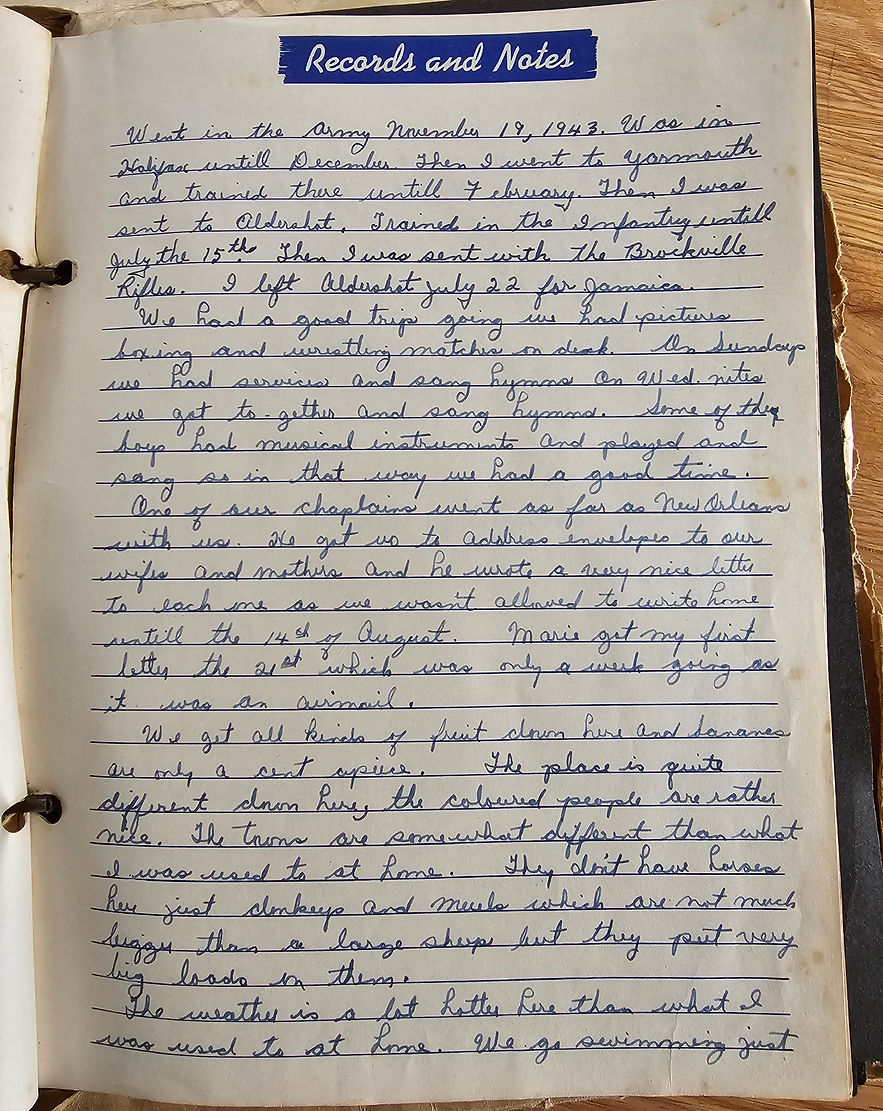 Records and Notes
Went in the Army November 19, 1943. Was in
Halifax untill December. Then I went to Yarmouth
and trained there untill February. Then I was
sent to Aldershot. Trained in the Infantry untill
July the 15th. Then I was sent with the Brockville
Rifles. I left Aldershot July 22 for Jamaica.
We had a good trip going we had pictures
boxing and wrestling matches on deck. On Sundays
we had services and sang hymns On Wed. nites
we got to-gether and sang hymns. Some of the
boys had musical instruments and played and
sang so in that way we had a good time.
One of our chaplains went as far as New Orleans
with us. He got us to address envelopes to our
wifes and mothers and he wrote a very nice letter
to each one as we wasn't allowed to write home
untill the 14th of August. Marie got my first
letter the 21st which was only a week going as
it was an airmail.
We get all kinds of fruit down here and bananas
are only a cent apiece. The place is quite
different down here, the coloured people are rather
nice. The towns are somewhat different than what
I was used to at home. They don't have horses
here just donkeys and meuls which are not much
bigger than a large sheep but they put very
big loads on them.
The weather is a lot hotter here than what I
was used to at home. We go swimming just